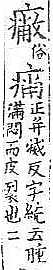 俗
正并反字統云腫
滿悶而皮裂也二